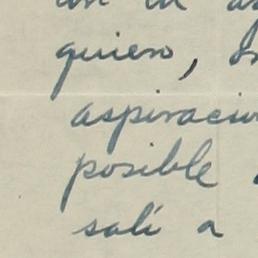 quiero,
aspiracio
posible
salí a